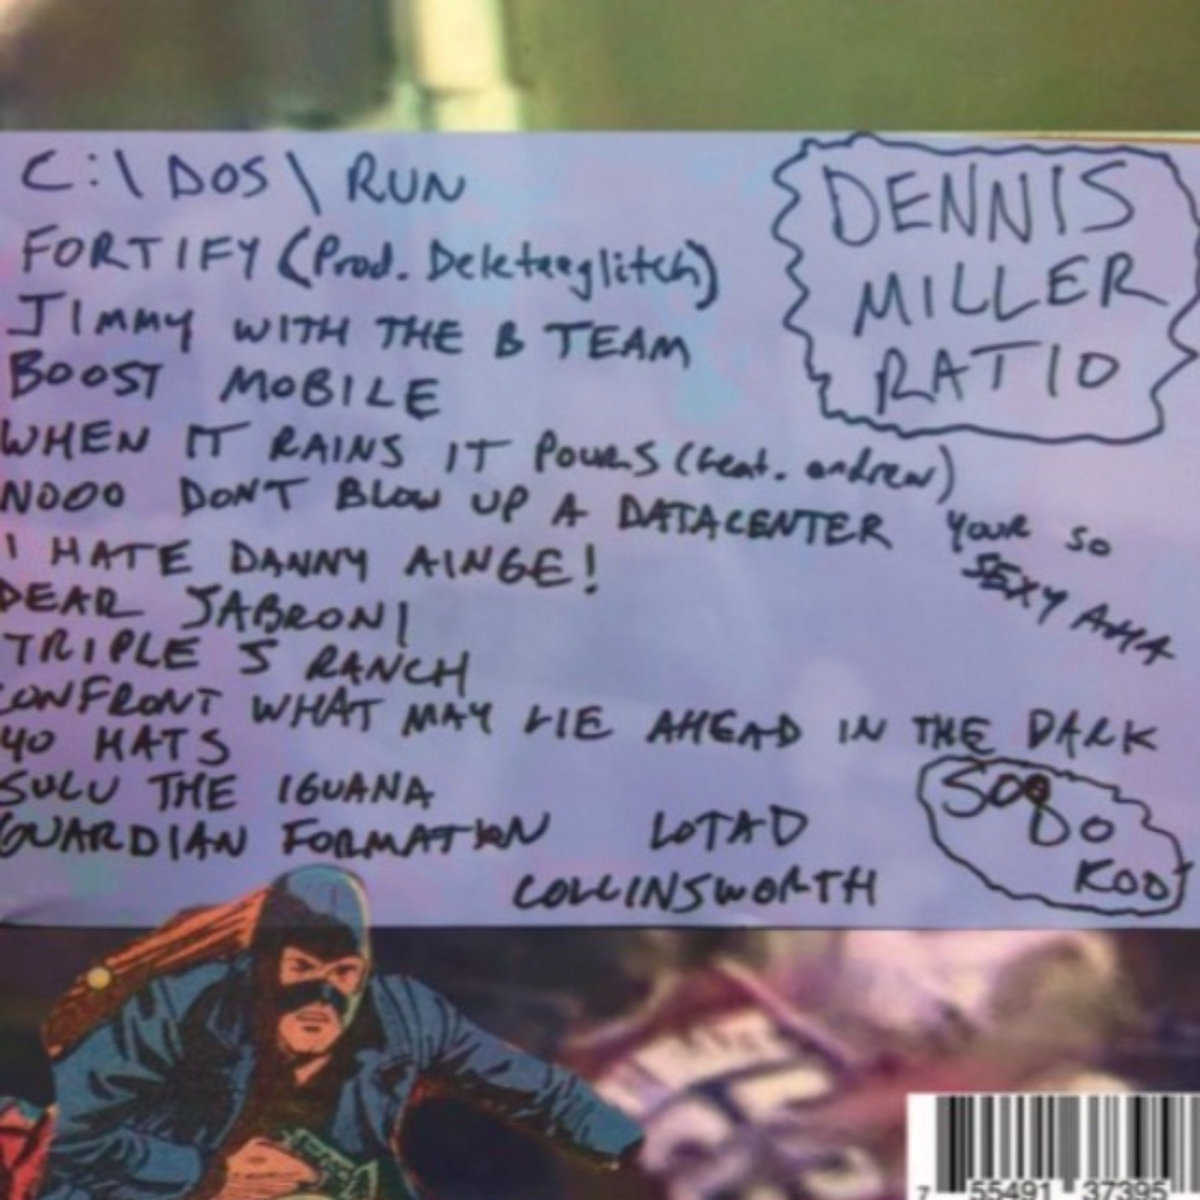 C:\DOS\RUN
FORTIFY (Prod. Deleteaglitch)
JIMMY WITH THE B TEAM
BOOST MOBILE
WHEN IT RAINS IT POURS (feat. andrew)
NOOO DON'T BLOW UP A DATACENTER YOUR SO
SEXY AHA
I HATE DANNY AINGE!
DEAR JABRONI
TRIPLE S RANCH
CONFRONT WHAT MAY LIE AHEAD IN THE DARK
40 HATS
SULU THE IGUANA
GUARDIAN FORMATION LOTAD
COLLINSWORTH
DENNIS
MILLER
RATIO
KOD
7 55491 37395